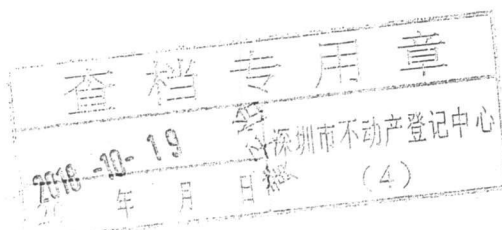 查档专用章
2018-10-19
深圳市不动产登记中心
年 月 日
(4)